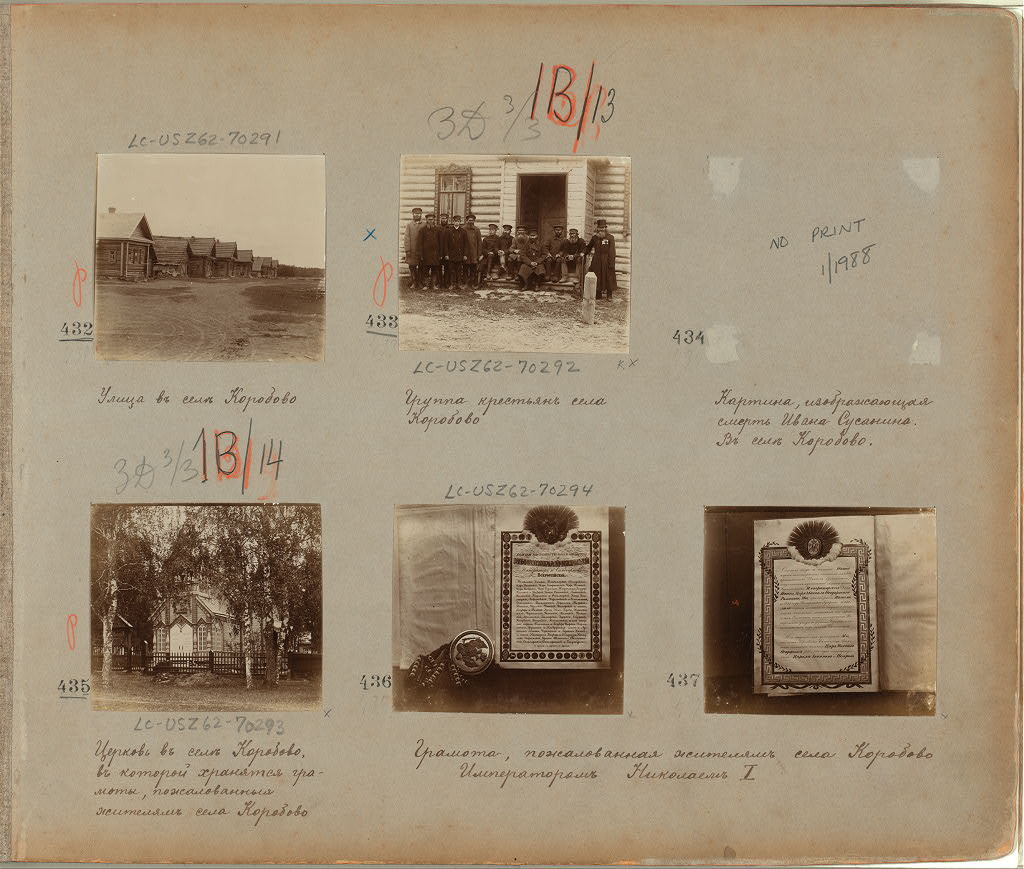 1В/13
3Д 3/3
LC-USZ62-70291
432
433
LC-USZ62-70292
K X
434
NO PRINT
1/1988
Улица въ селѣ Коробово
Группа крестьянъ села
Коробово
Картина, изображающая
смерть Ивана Сусанина.
Въ селѣ Коробово.
3Д 3/3 1В/14
LC-USZ62-70294
435
436
437
LC-USZ62-70293
Церковь въ селѣ Коробово,
въ которой хранятся гра-
моты, пожалованныя
жителямъ села Коробово
Грамота, пожалованная жителямъ села Коробово
Императоромъ Николаемъ I